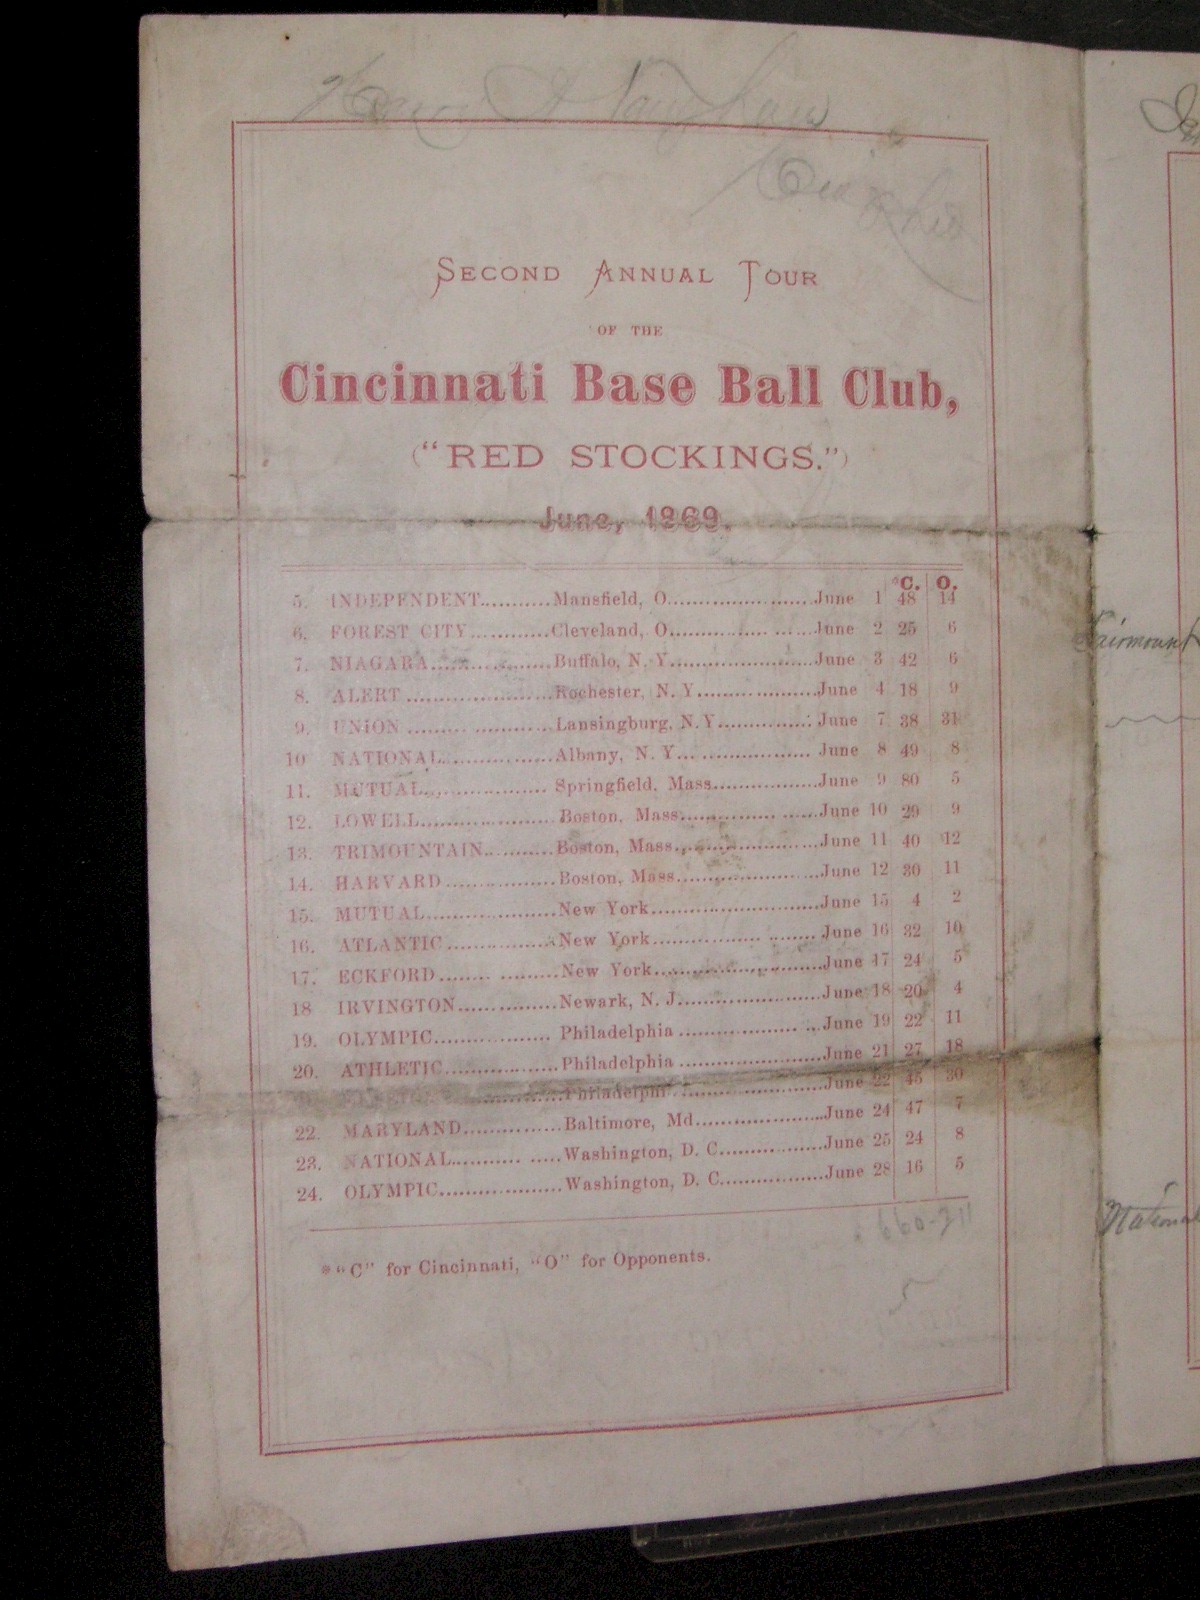 SECOND ANNUAL TOUR
OF THE
Cincinnati Base Ball Club,
("RED STOCKINGS.")
June, 1869.
*C. O.
5. INDEPENDENT..........Mansfield, O....................June 1 48 14
6. FOREST CITY...........Cleveland, O....................June 2 25 6
7. NIAGARA................Buffalo, N. Y....................June 3 42 6
8. ALERT....................Rochester, N. Y.................June 4 18 9
9. UNION....................Lansingburg, N. Y..............June 7 38 31
10 NATIONAL...............Albany, N. Y................... June 8 49 8
11. MUTUAL.................. Springfield, Mass...............June 9 80 5
12. LOWELL...................Boston, Mass...................June 10 29 9
13. TRIMOUNTAIN..........Boston, Mass...................June 11 40 12
14. HARVARD................Boston, Mass...................June 12 30 11
15. MUTUAL...................New York........................June 15 4 2
16. ATLANTIC................New York....................... June 16 32 10
17. ECKFORD.................New York........................June 17 24 5
18 IRVINGTON..............Newark, N. J....................June 18 20 4
19. OLYMPIC................. Philadelphia....................June 19 22 11
20. ATHLETIC................Philadelphia....................June 21 27 18
Philadelphia....................June 22 45 30
22. MARYLAND..............Baltimore, Md..................June 24 47 7
23. NATIONAL...............Washington, D. C...............June 25 24 8
24. OLYMPIC..................Washington, D. C...............June 28 16 5
*"C" for Cincinnati, "O" for Opponents.
Fairmount
National